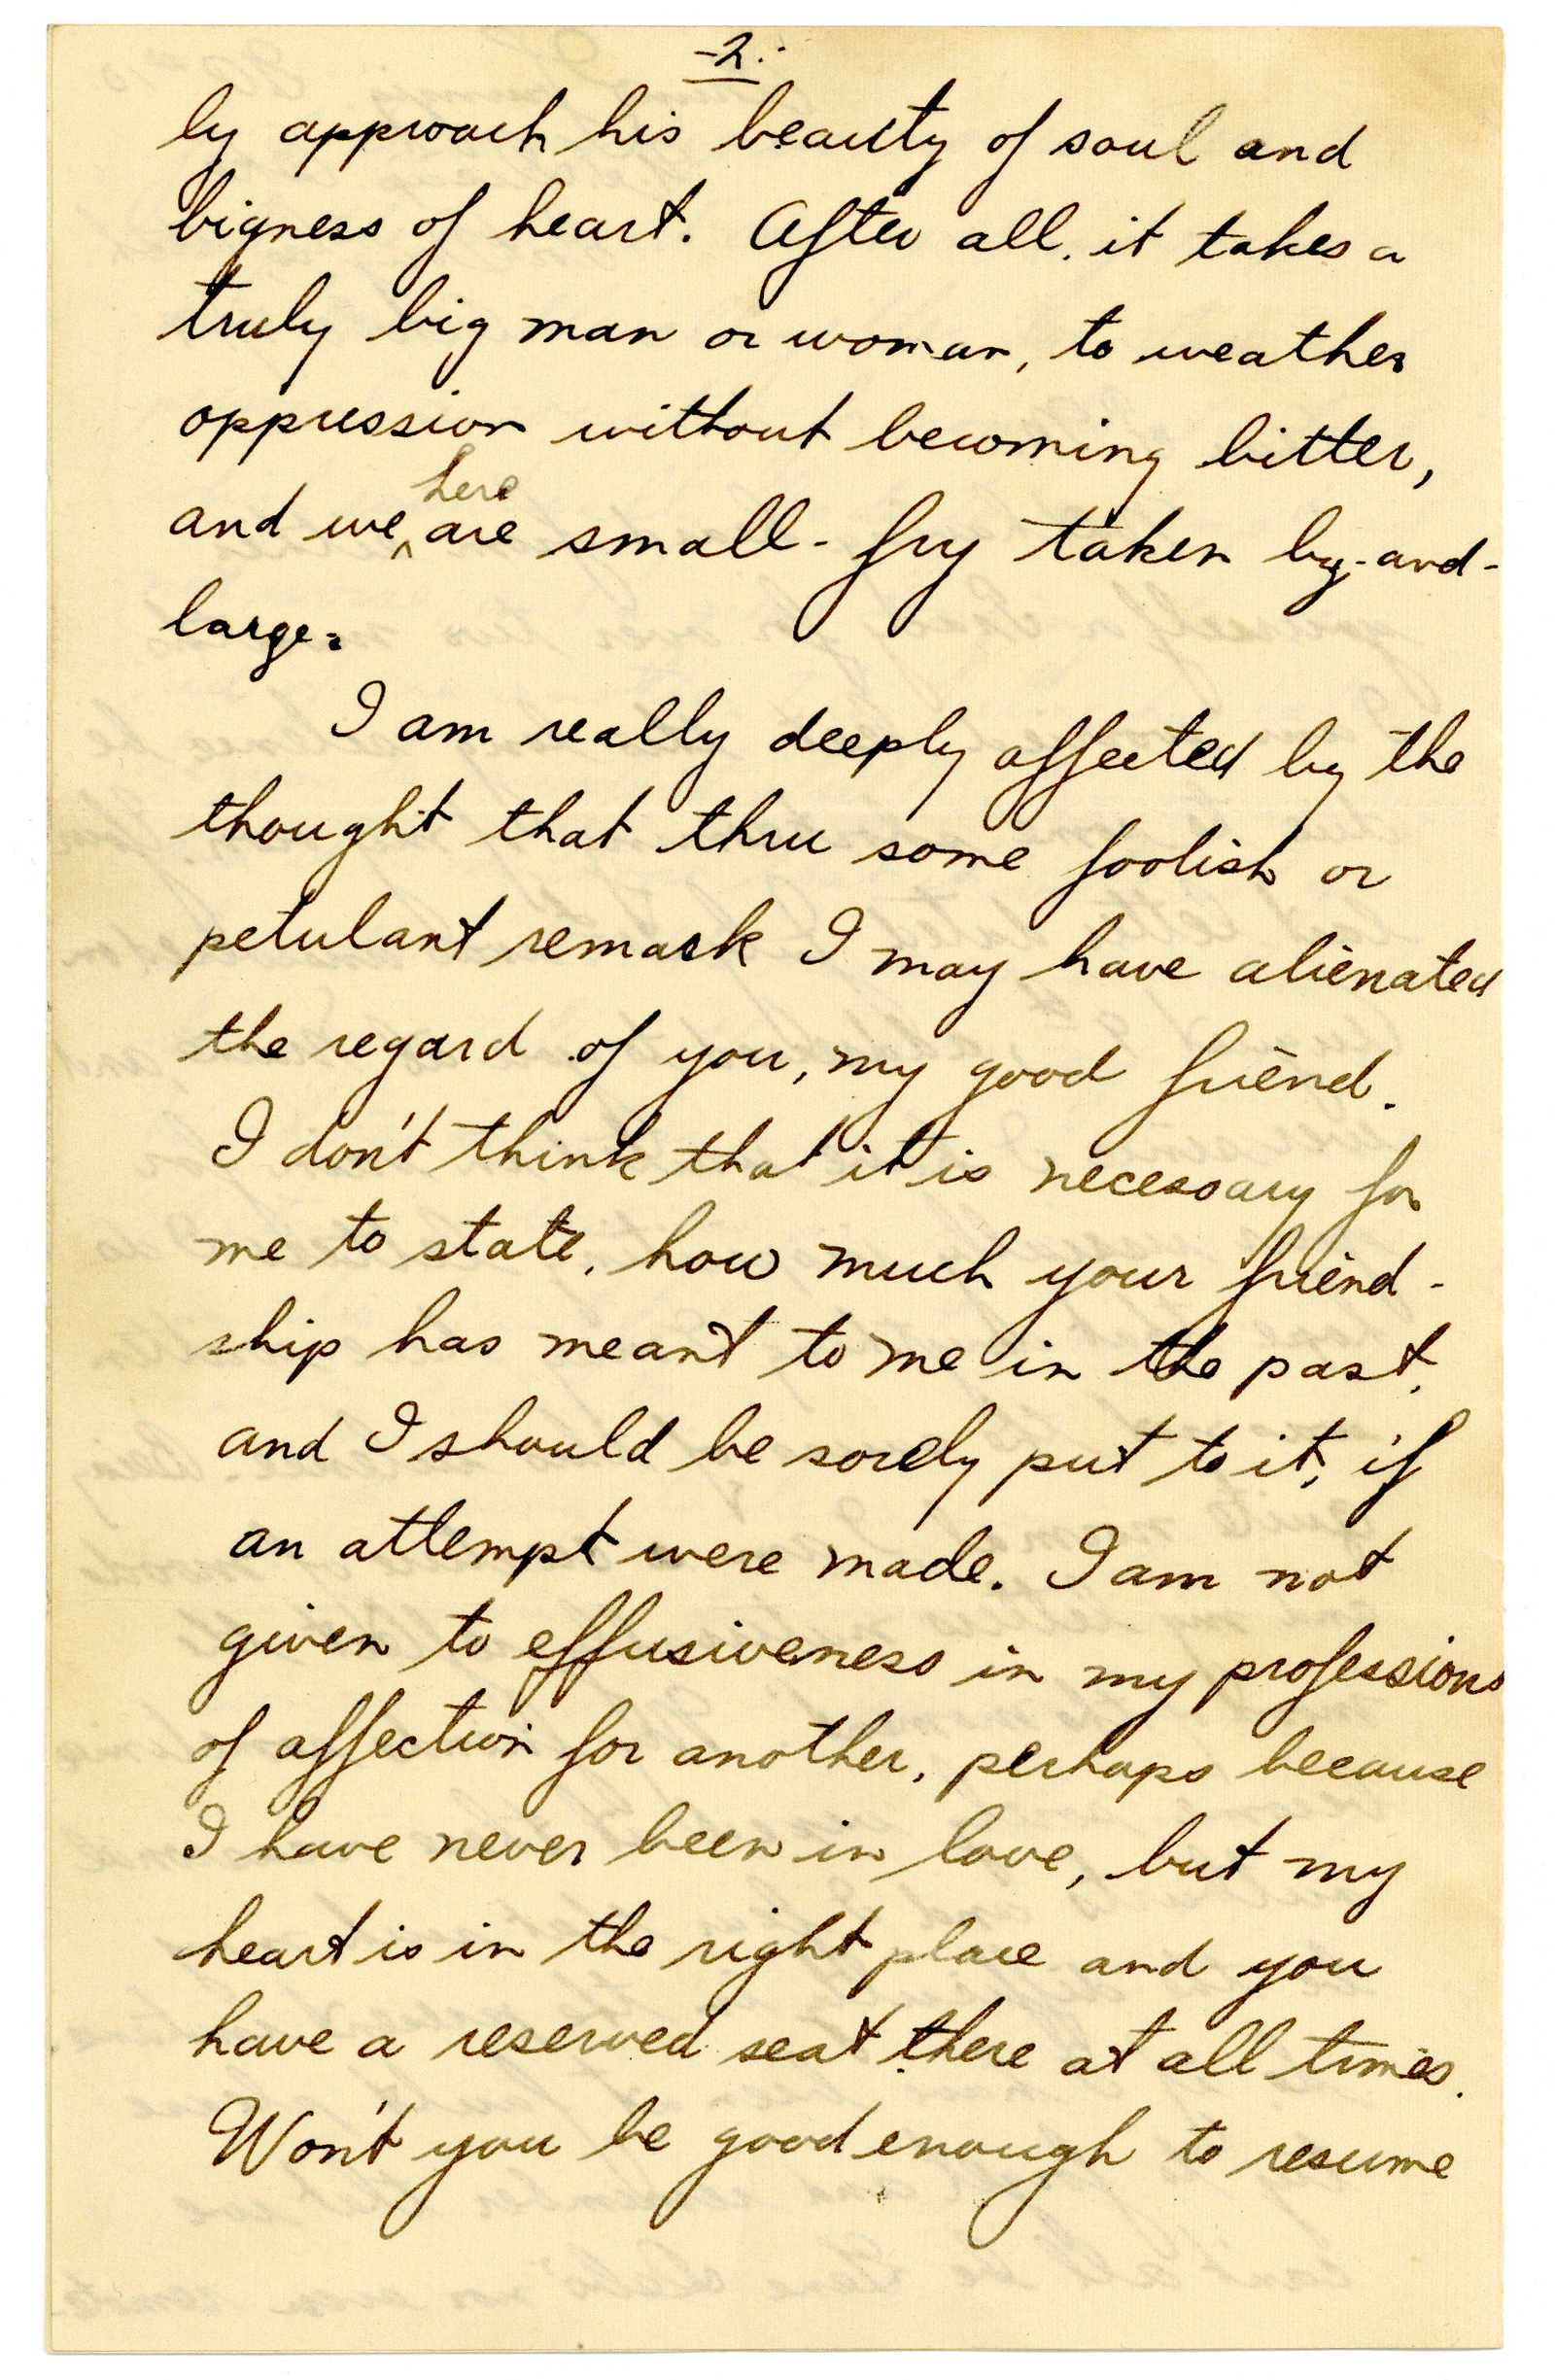 -2.-
ly approach his beauty of soul and
bigness of heart. After all, it takes a
truly big man or woman, to weather
oppression without becoming bitter,
and we ^ here are small-fry taken by-and-
large.
I am really deeply affected by the
thought that thru some foolish or
petulant remark I may have alienated
the regard of you, my good friend.
I don't think that it is necessary for
me to state, how much your friend-
ship has meant to me in the past,
and I should be sorely put to it, if
an attempt were made. I am not
given to effusiveness in my professions
of affection for another, perhaps because
I have never been in love, but my
heart is in the right place and you
have a reserved seat there at all times.
Won't you be good enough to resume